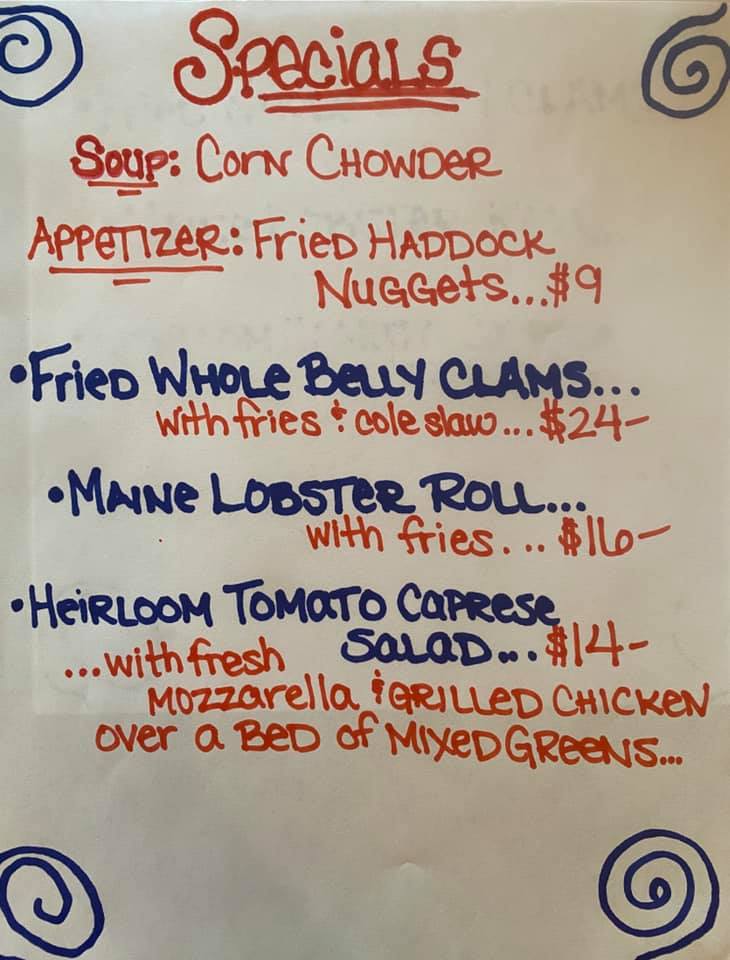 Specials
Soup: Corn Chowder
Appetizer: Fried Haddock
Nuggets...$9
•Fried Whole Belly Clams...
with fries & cole slaw...$24-
•Maine Lobster Roll...
with fries... $16-
•Heirloom Tomato Caprese
Salad...$14-
...with fresh
Mozzarella & Grilled Chicken
over a Bed of Mixed Greens...